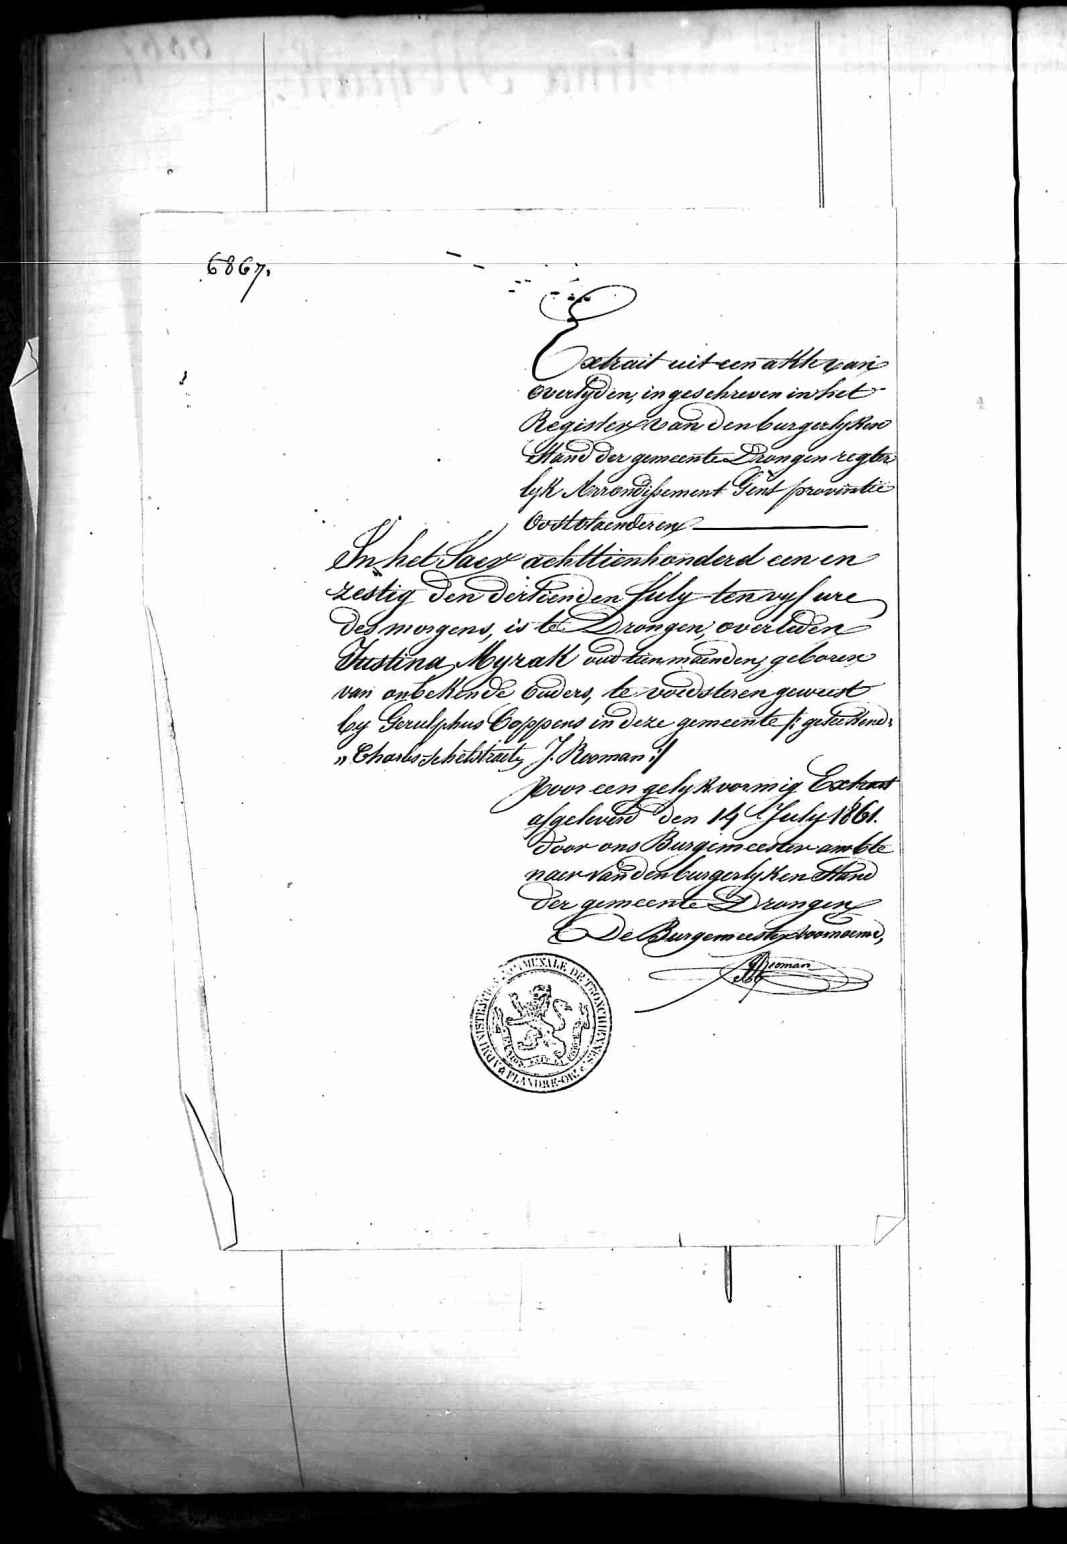 6867.
Extrait uit een akte van
overlyden, ingeschreven in het
Register van den burgerlyken
Stand der gemeente Drongen regter
lyk Arrondissement Gent provintie
Oostvlaenderen
In het Jaer achttienhonderd een en
zestig den dertienden July ten vyf ure
des morgens, is te Drongen, overleden
Justina Myrak oud tien maenden, geboren
van onbekende Ouders, te voedsteren geweest
by Gerulphus Coppens in deze gemeente /: geteekend:
„ Charles Schelstraete, J. Rooman :/
Voor een gelykvormig Extract
afgeleverd den 14 July 1861.
door ons Burgemeester ambte
naer van den burgerlyken Stand
der gemeente Drongen
De Burgemeester voornoemd,
Rooman
ADMINISTRATION COMMUNALE DE TRONCHIENNES
FLANDRE-ORLE